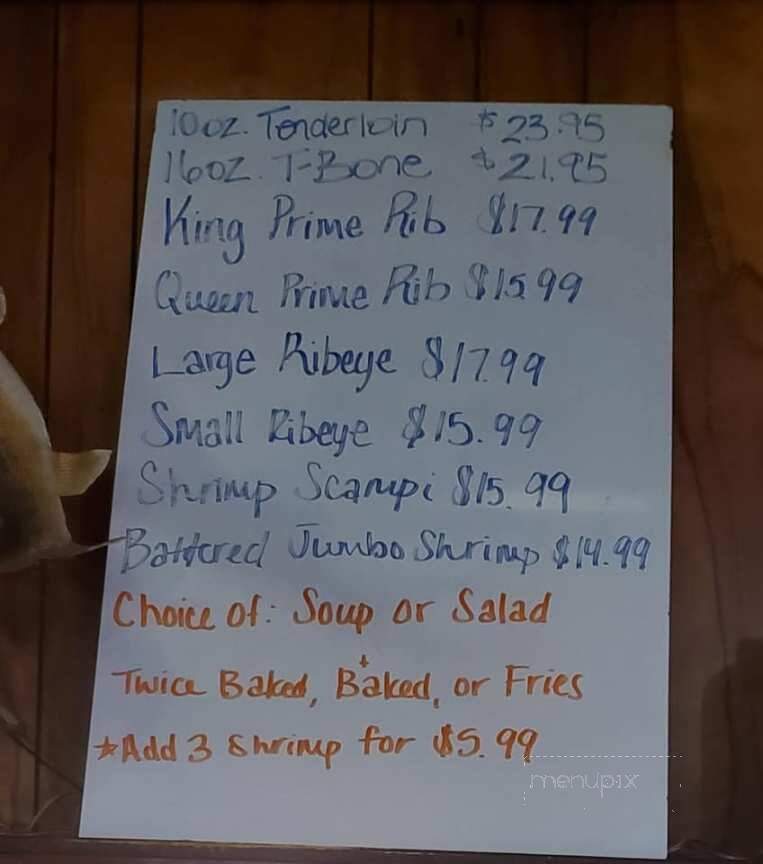 10oz. Tenderloin $23.95
16oz. T-Bone $21.95
King Prime Rib $17.99
Queen Prime Rib $15.99
Large Ribeye $17.99
Small Ribeye $15.99
Shrimp Scampi $15.99
Battered Jumbo Shrimp $14.99
Choice of: Soup or Salad
+
Twice Baked, Baked, or Fries
*Add 3 Shrimp for $5.99
menupix